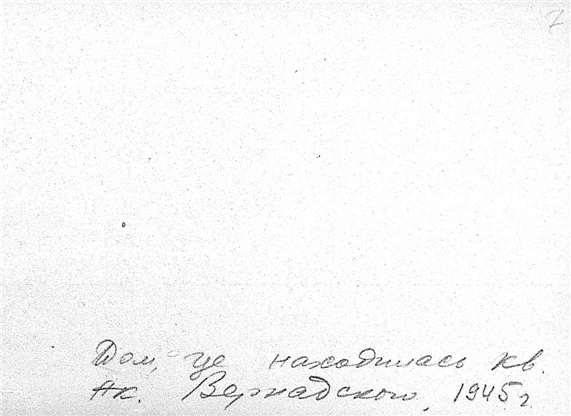 7
Дом, где находилась кв.
Ак. Вернадского, 1945 г.